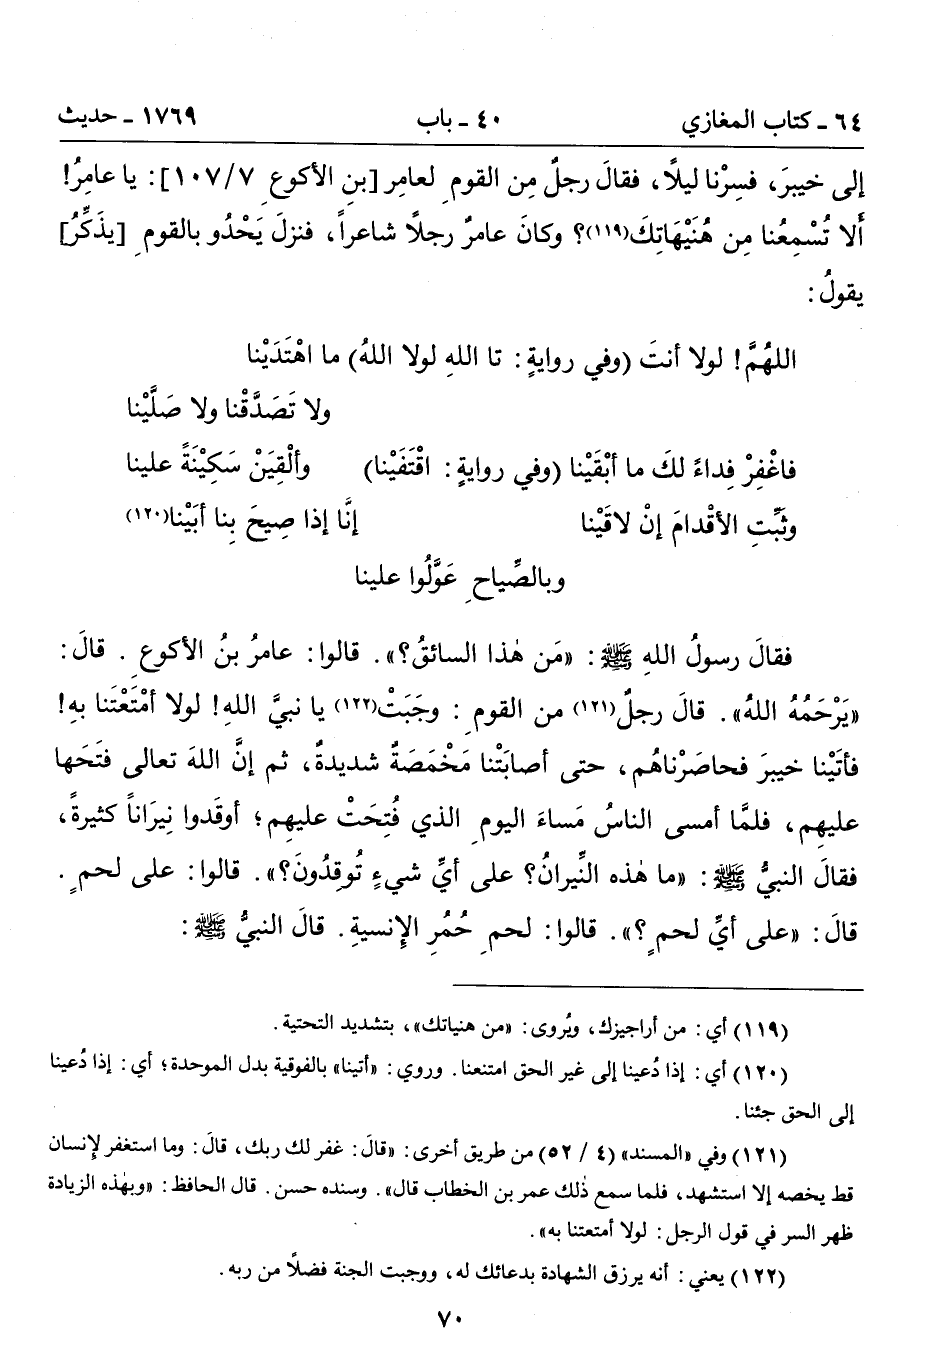 ٦٤ - كتاب المغازي ٤٠ - باب ١٧٦٩ - حديث
إلى خيبرَ، فسِرْنا ليلًا، فقالَ رجلٌ مِن القومِ لعامِرِ [بنِ الأكوعِ ١٠٧/٧]: يا عامِرُ!
أَلا تُسْمِعُنا مِن هُنَيْهَاتِكَ(١١٩)؟ وكانَ عامرٌ رجلًا شاعراً، فنزلَ يَحْدُو بالقومِ [يذَكِّرُ]
يقولُ:
اللهُمَّ! لولا أنتَ (وفي روايةٍ: تا اللهِ لولا اللهُ) ما اهْتَدَيْنا
ولا تَصَدَّقْنا ولا صَلَّيْنا
فاغْفِرْ فِداءً لكَ ما أبْقَيْنا (وفي روايةٍ: اقْتَفَيْنا) وألْقِيَنْ سَكِيْنَةً علينا
وثَبِّتِ الأقْدامَ إنْ لاقَيْنا إنَّا إذا صِيحَ بنا أبَيْنا(١٢٠)
وبالصِّياحِ عَوَّلُوا علينا
فقالَ رسولُ اللهِ ﷺ: «مَن هٰذا السائقُ؟». قالوا: عامرُ بنُ الأكوعِ. قالَ:
«يَرْحَمُهُ اللهُ». قالَ رجلٌ(١٢١) من القومِ: وجَبَتْ(١٢٢) يا نبيَّ اللهِ! لولا أمْتَعْتَنا بهِ!
فأتَيْنا خيبرَ فحاصَرْناهُم، حتى أصابَتْنا مَخْمَصَةٌ شديدةٌ، ثم إنَّ اللهَ تعالى فتَحَها
عليهِم، فلمَّا أمسى الناسُ مَساءَ اليومِ الذي فُتِحَتْ عليهِم؛ أوقَدوا نِيرَاناً كثيرةً،
فقالَ النبيُّ ﷺ: «ما هٰذه النِّيرانُ؟ على أيِّ شيءٍ تُوقِدُونَ؟». قالوا: على لحمٍ.
قالَ: «على أيِّ لحمٍ؟». قالوا: لحمِ حُمُرِ الإنسيةِ. قالَ النبيُّ ﷺ:
(١١٩) أي: من أراجيزك، ويُروى: «من هنياتك»، بتشديد التحتية.
(١٢٠) أي: إذا دُعينا إلى غير الحق امتنعنا. وروي: «أتينا» بالفوقية بدل الموحدة؛ أي: إذا دُعينا
إلى الحق جئنا.
(١٢١) وفي «المسند» (٤ / ٥٢) من طريق أخرى: «قالَ: غفر لك ربك، قالَ: وما استغفر لإنسان
قط يخصه إلا استشهد، فلما سمع ذٰلك عمر بن الخطاب قال». وسنده حسن. قال الحافظ: «وبهٰذه الزيادة
ظهر السر في قول الرجل: لولا أمتعتنا به».
(١٢٢) يعني: أنه يرزق الشهادة بدعائك له، ووجبت الجنة فضلًا من ربه.
٧٠